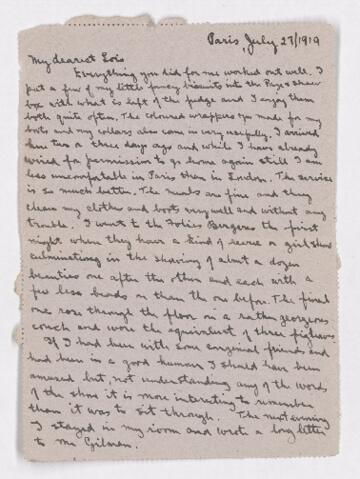 Paris July 27/1919
My dearest Lois
Everything you did for me worked out well. I
put a few of my little fancy biscuits into the
box with what is left of the fudge and I enjoy them
both quite often. The coloured wrappers you made for my
boots and my collars also came in very usefully. I arrived
here two or three days ago and while I have already
wired for permission to go home again still I am
less uncomfortable in Paris than in London. The service
is so much better. The meals are fine and they
clean my clothes and boots very well and without any
trouble. I went to the Folies Bergere the first
night where they have a kind of or girl show
culminating in the showing of about a dozen
beauties one after the other and each with a
few less beads on than the one before. The final
one rose through the floor on a rather georgeous
couch and wore the equivalent of three figleaves.
If I had been with some congenial friends and
had been in a good humour I should have been
amused but, not understanding any of the words
of the show it is more interesting to remember
than it was to sit through. The next evening
I stayed in my room and wrote a long letter
to Mr Gilman.